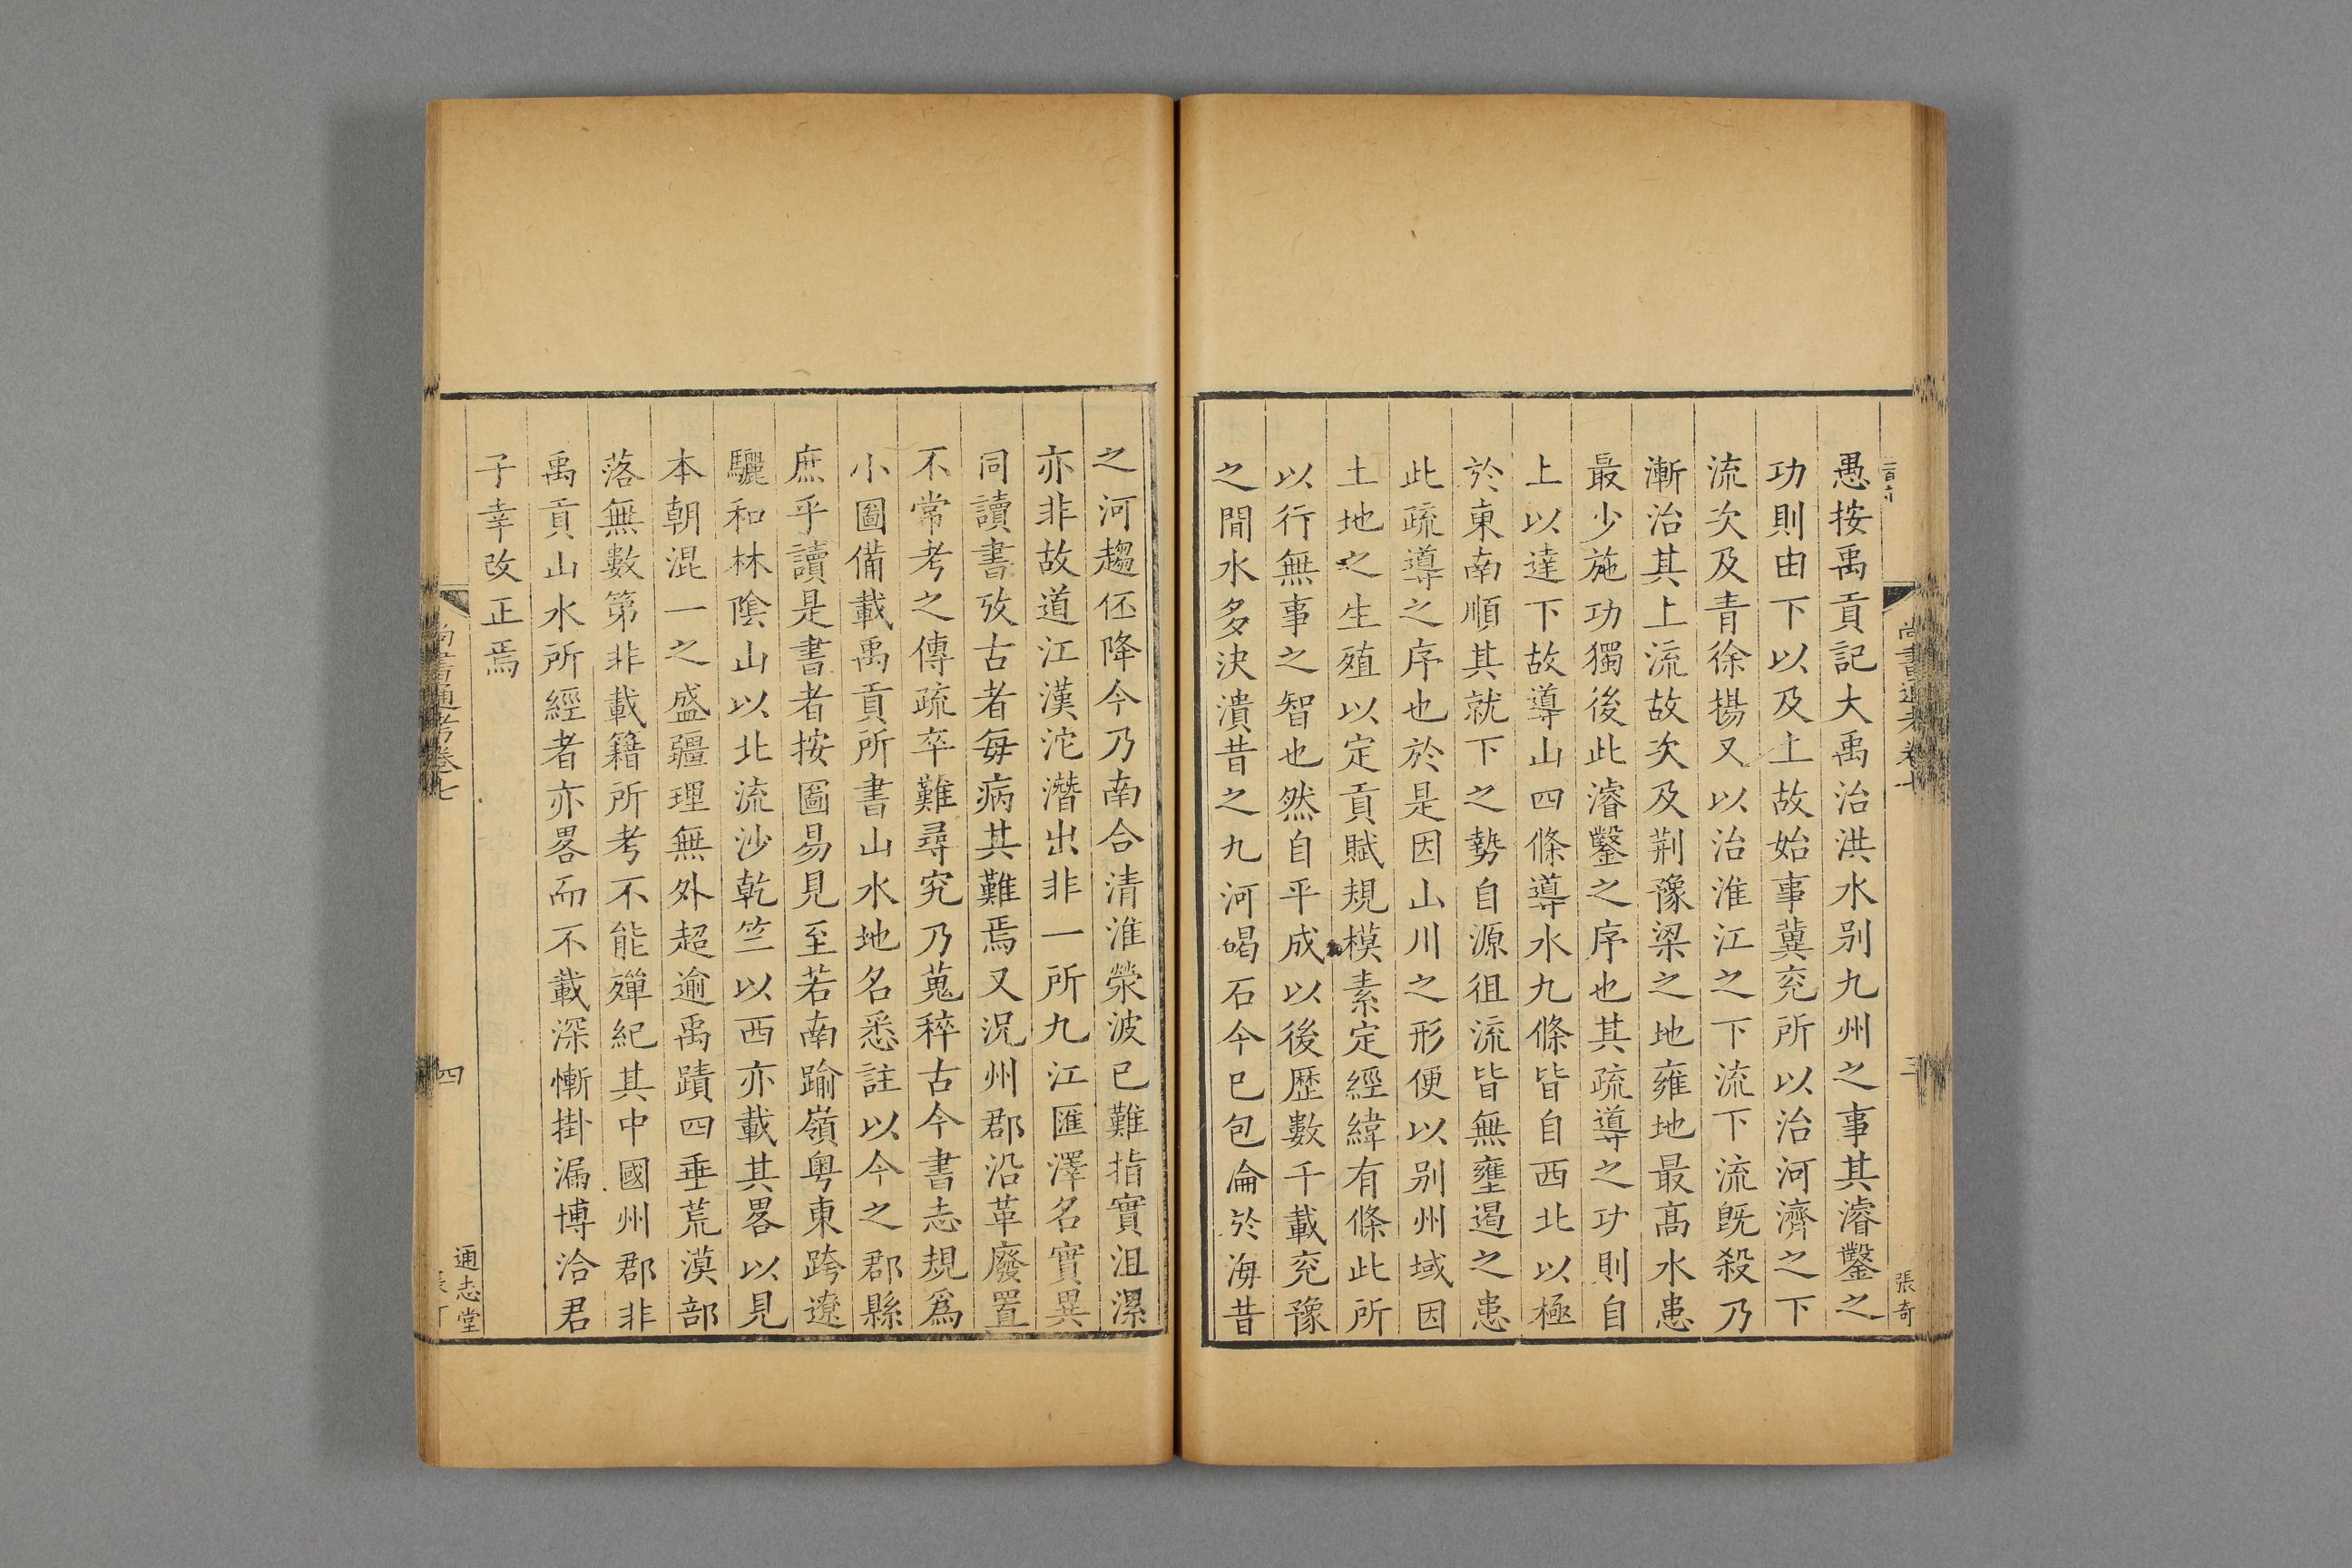 愚按禹貢記大禹治洪水别九州之事其濬鑿之
功則由下以及上故始事冀兖所以治河濟之下
流次及青徐揚又以治淮江之下流下流旣殺乃
漸治其上流故次及荆豫梁之地雍地最髙水患
最少施功獨後此濬鑿之序也其疏導之功則自
上以達下故導山四條導水九條皆自西北以極
於東南順其就下之勢自源徂流皆無壅遏之患
此疏導之序也於是因山川之形便以别州域因
土地之生殖以定貢賦規模素定經緯有條此所
以行無事之智也然自平成以後歷數千載兖豫
之間水多決潰昔之九河碣石今已包淪於海昔
尚書通考卷七
三
張奇
之河趨伾降今乃南合清淮滎波已難指實沮漯
亦非故道江漢沱潛出非一所九江匯澤名實異
同讀書攷古者每病其難焉又況州郡沿革廢置
不常考之傳疏卒難尋究乃蒐稡古今書志規爲
小圖備載禹貢所書山水地名悉註以今之郡縣
庶乎讀是書者按圖易見至若南踰嶺粤東跨遼
驪和林陰山以北流沙乾竺以西亦載其畧以見
本朝混一之盛疆理無外超逾禹蹟四垂荒漠部
落無數第非載籍所考不能殫紀其中國州郡非
禹貢山水所經者亦畧而不載深慚掛漏博洽君
子幸改正焉
尚書通考卷七
四
通志堂